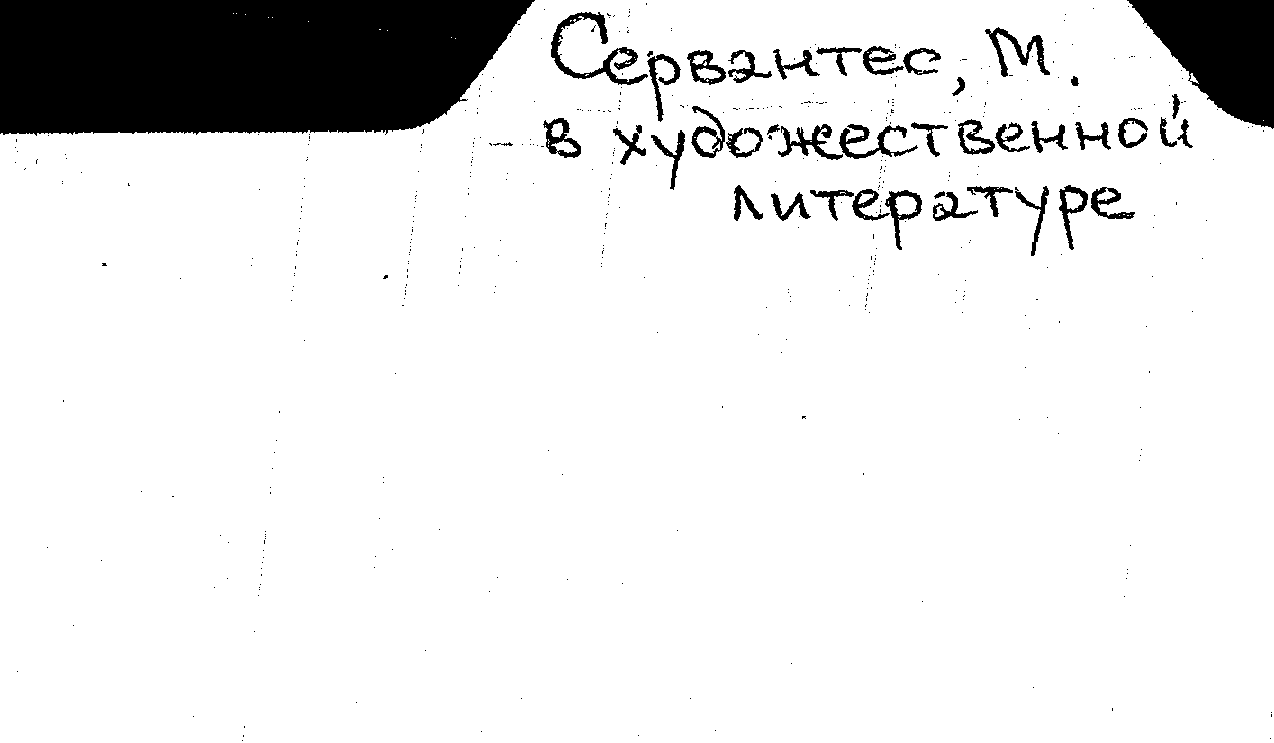 Сервантес, М.
в художественной
литературе